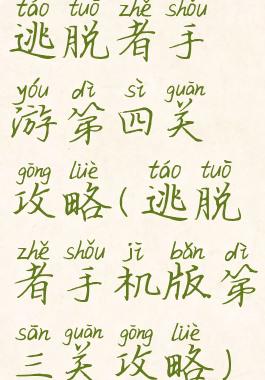 táo tuō zhě shǒu
逃脱者手
yóu dì sì guān
游第四关
gōng lüè táo tuō
攻略(逃脱
zhě shǒu jī bǎn dì
者手机版第
sān guān gōng lüè
三关攻略)